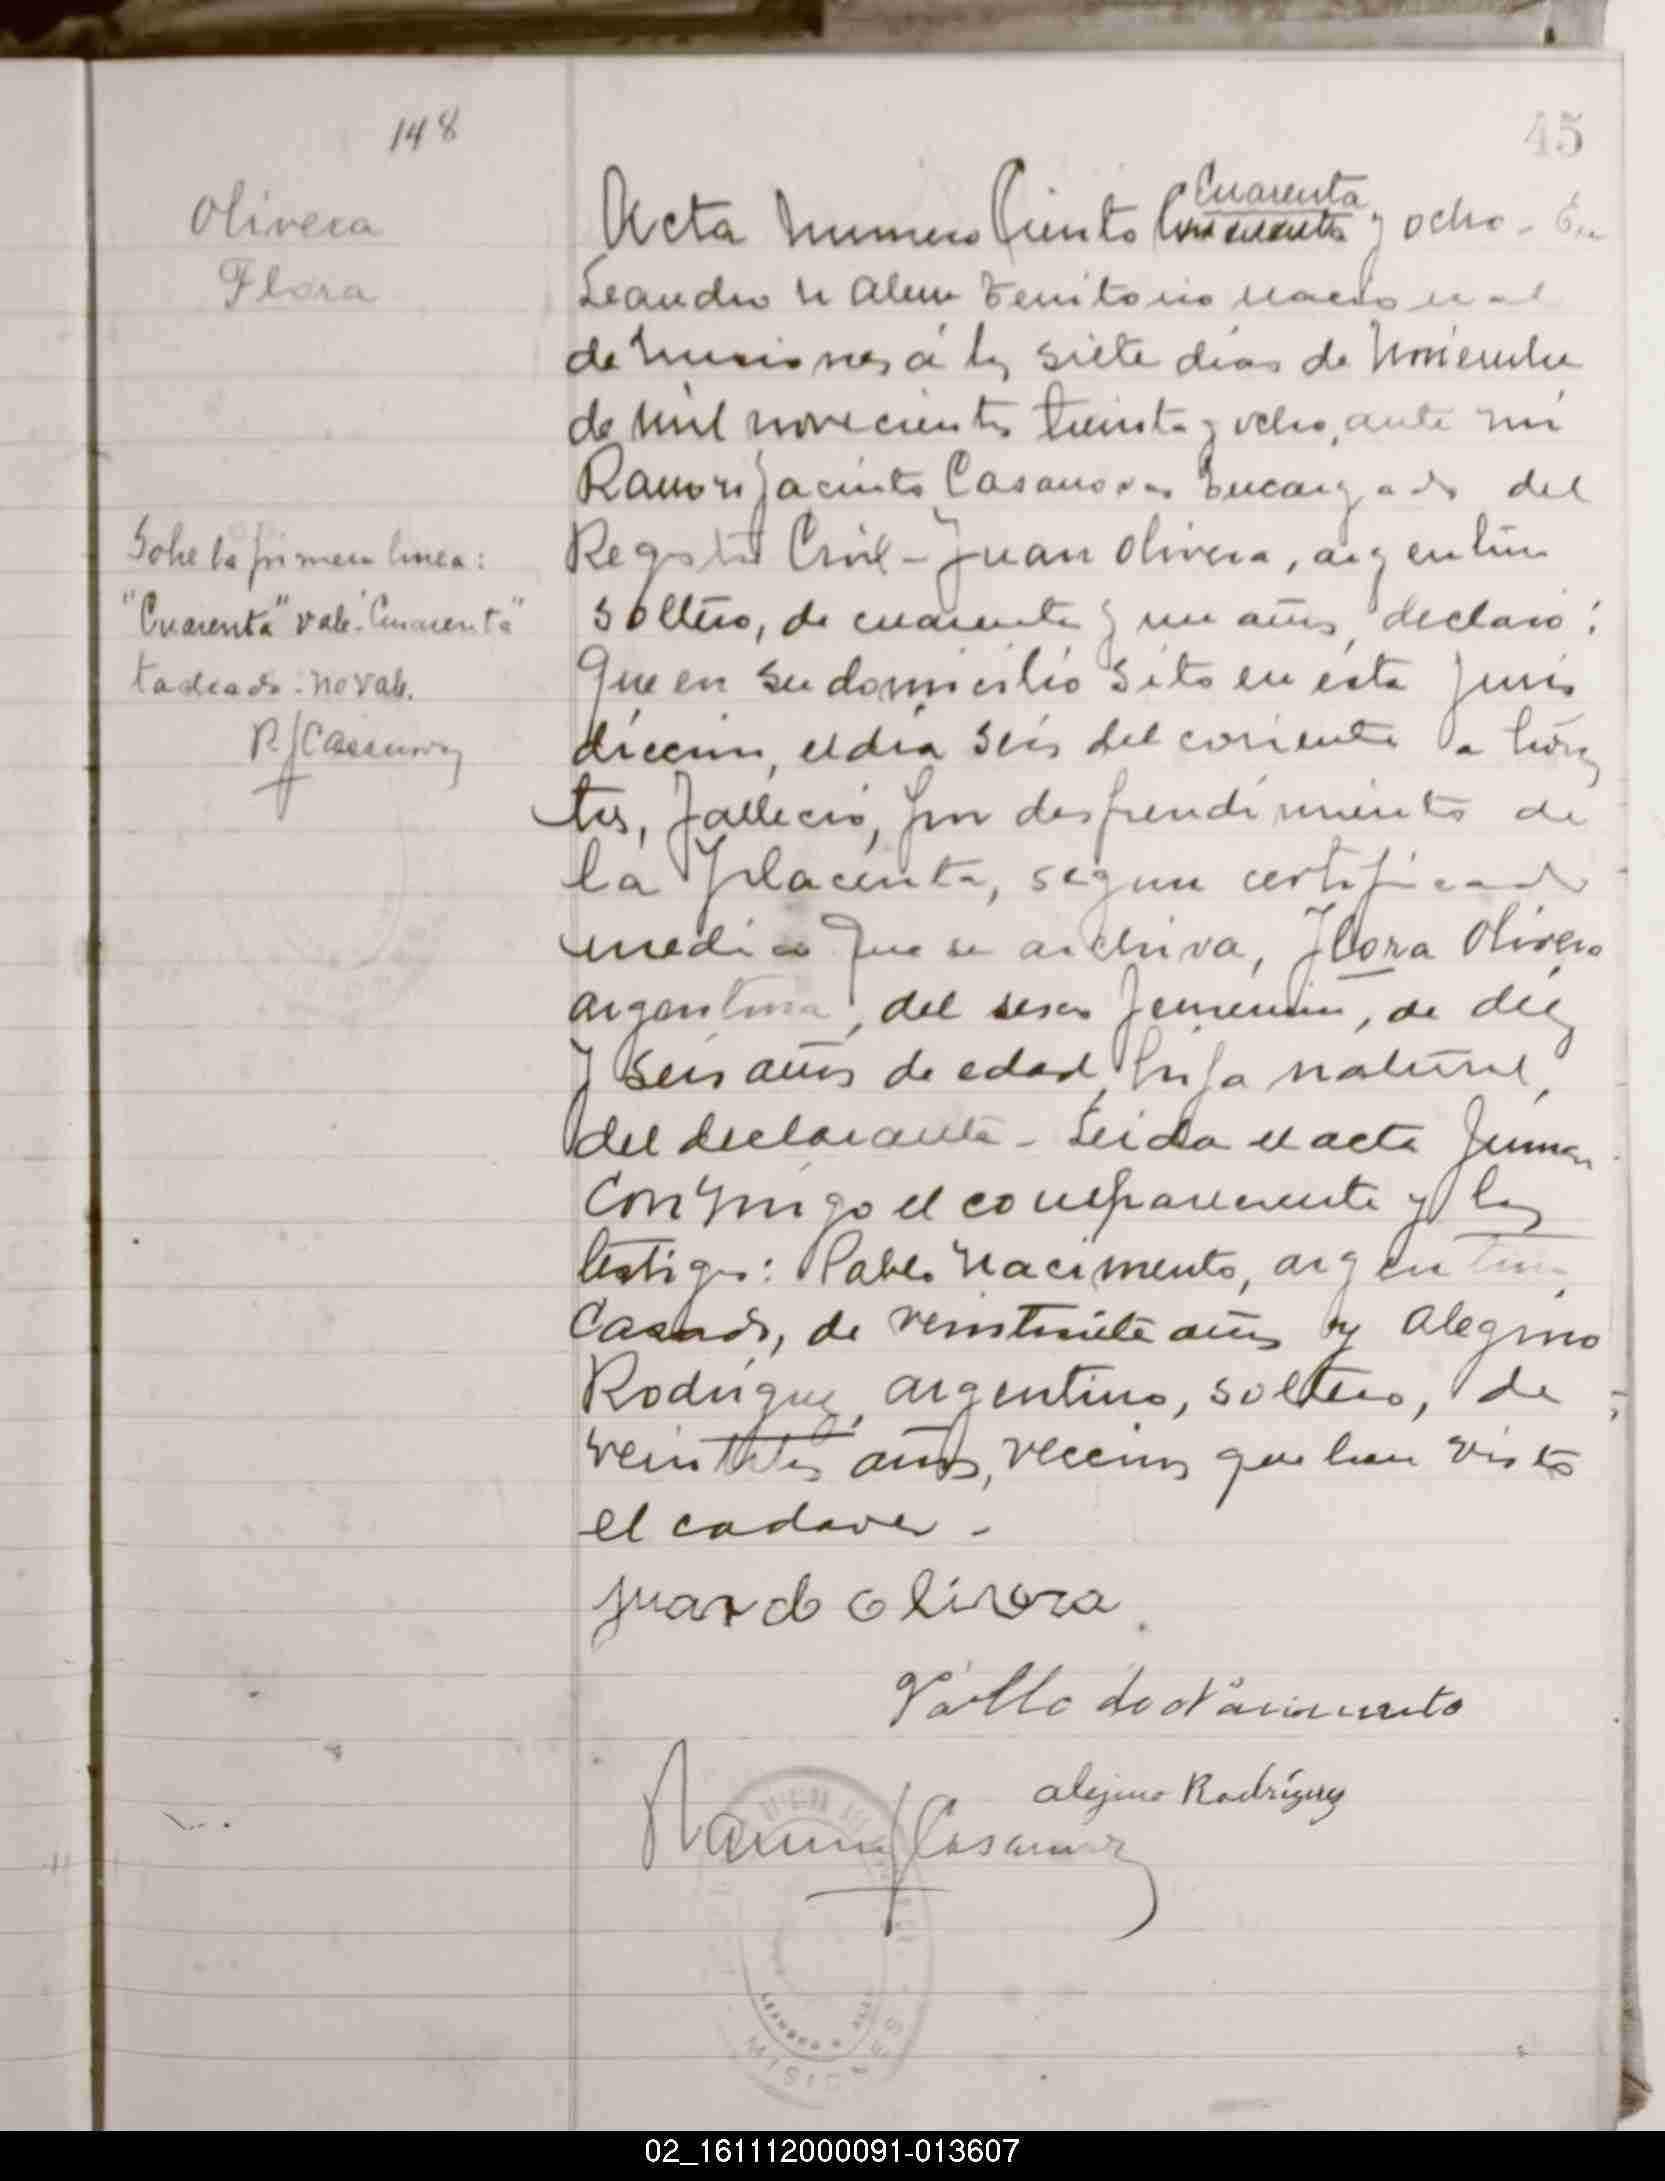 148
45
Olivera
Flora
Acta numero Ciento Cuarenta y ocho - En
Leandro N Alem Territorio nacional
de Misiones á los siete dias de Noviembre
de mil novecientos treinta y ocho, ante mi
Ramon Jacinto Casanovas Encargado del
Registro Civil - Juan Olivera, argentino
soltero, de cuarenta y un años, declaró:
Que en su domicilio sito en esta juris
diccion, el dia seis del corriente a horas
tres, falleció, por desprendimiento de
la placenta, segun certificado
medico que se archiva, Flora Olivera
argentina, del sexo femenino, de diez
y seis años de edad, hija natural,
del declarante - Leida el acta firman
conmigo el compareciente y los
testigos: Pablo Nacimento, argentino
casado, de veintisiete años y Alegino
Rodriguez, argentino, soltero, de
veintitres años, vecinos que han visto
el cadaver -
Sobre la primera linea:
"Cuarenta" vale "Cincuenta"
tadeado: no vale.
R J Casanovas
Juan do Olivera
Pablo do Nacimento
alejino Rodríguez
Ramon J Casanovas
LEANDRO N. ALEM
MISIONES
02_161112000091-013607